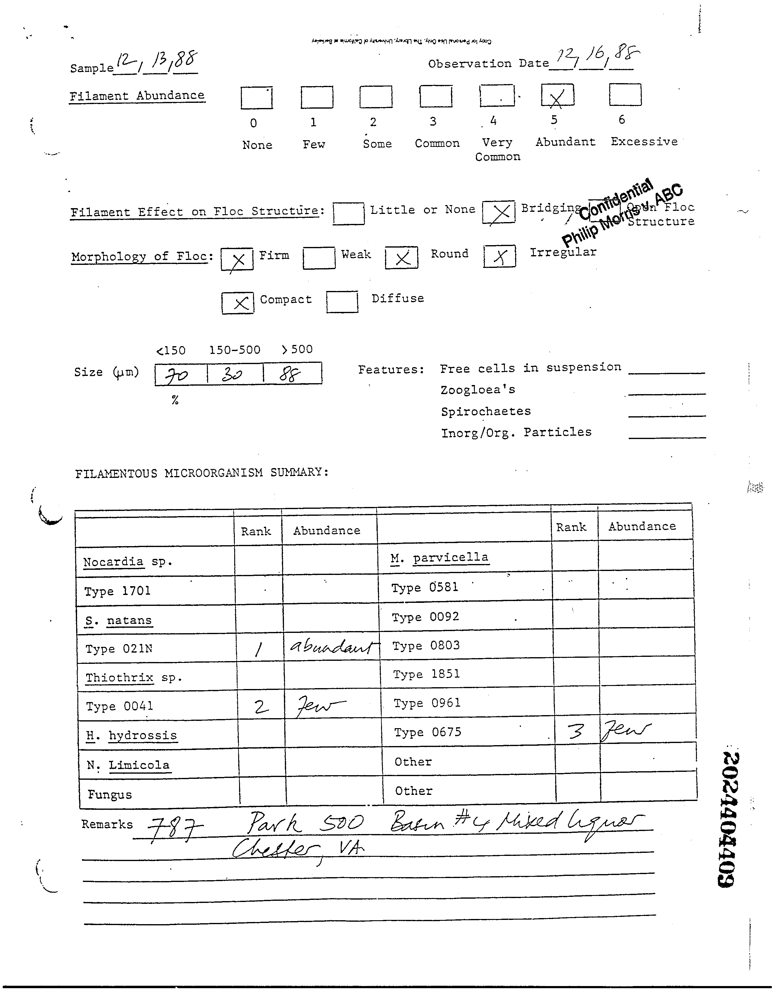 Copy for Personal Use Only, The Library, University of California at Berkeley
Sample 12, 13, 88 Observation Date 12, 16, 88
Filament Abundance X
0 1 2 3 4 5 6
None Few Some Common Very Common Abundant Excessive
Confidential
Philip Morris v. ABC
Filament Effect on Floc Structure: Little or None X Bridging Open Floc Structure
Morphology of Floc: X Firm Weak X Round X Irregular
X Compact Diffuse
<150 150-500 >500
Size (μm) 70 30 88 Features: Free cells in suspension
% Zoogloea's
Spirochaetes
Inorg/Org. Particles
FILAMENTOUS MICROORGANISM SUMMARY:
Rank Abundance Rank Abundance
Nocardia sp. M. parvicella
Type 1701 Type 0581
S. natans Type 0092
Type 021N 1 abundant Type 0803
Thiothrix sp. Type 1851
Type 0041 2 Few Type 0961
H. hydrossis Type 0675 3 Few
N. Limicola Other
Fungus Other
Remarks 787 Park 500 Basin #4 Mixed liquor
Chester, VA
2024404409